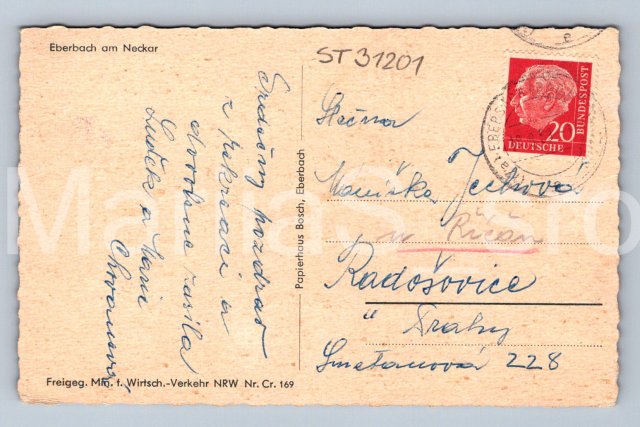 Eberbach am Neckar
ST 31201
Srdečný pozdrav
z rekreace a
dovolené zasílá
Luděk a
Papierhaus Bosch, Eberbach
Freigeg. Min. f. Wirtsch.-Verkehr NRW Nr. Cr. 169
20
DEUTSCHE
BUNDESPOST
EBERB
Slečna
Maruška
u Říčan
Radošovice
u Prahy
Smetanová 228